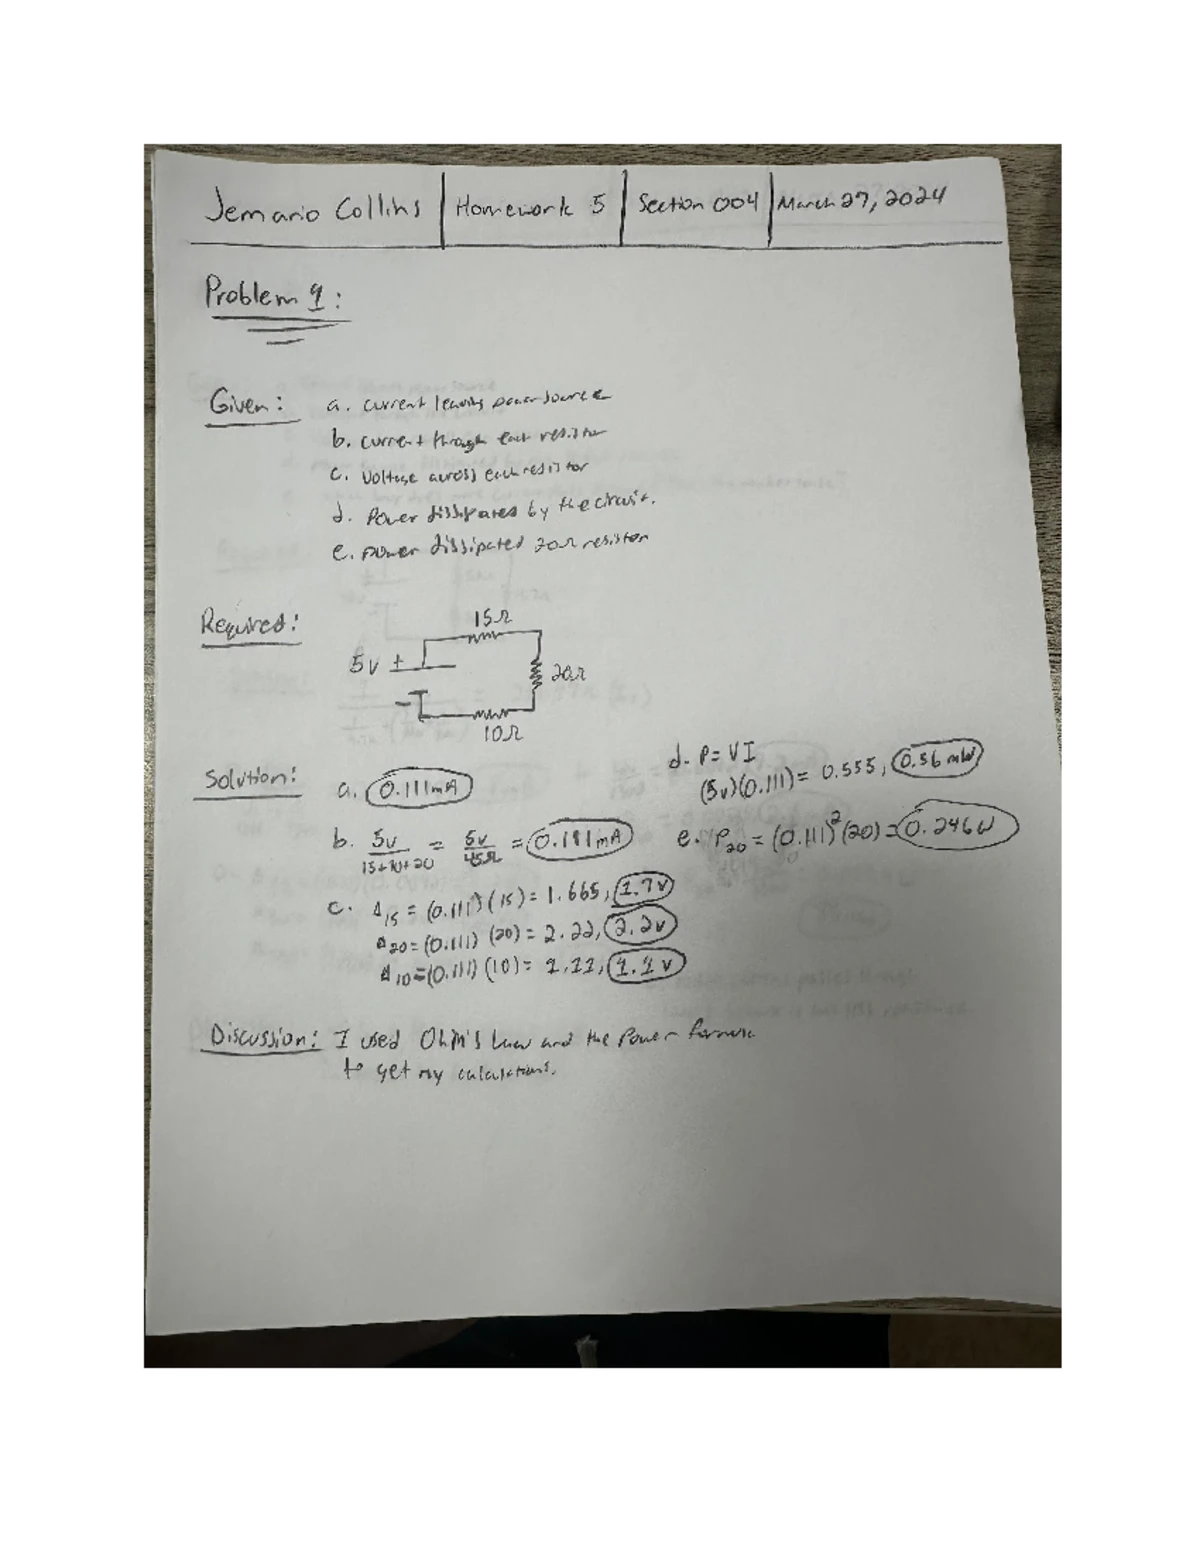 Jemario Collins Homework 5 Section 004 March 27, 2024
Problem 1:
Given: a. current leaving power source
b. current through each resistor
c. Voltage across each resistor
d. Power dissipated by the circuit.
e. power dissipated 20Ω resistor
Required:
15Ω
5v +
20Ω
-
10Ω
Solution: a. 0.111mA
b. 5v/15+10+20 = 5v/45Ω = 0.111mA
c. Δ15 = (0.111)(15) = 1.665, 1.7v
Δ20 = (0.111)(20) = 2.22, 2.2v
Δ10 = (0.111)(10) = 1.11, 1.1v
d. P = VI
(5v)(0.111) = 0.555, 0.56mW
e. P20 = (0.111)²(20) = 0.246W
Discussion: I used Ohm's Law and the Power formula
to get my calculations.